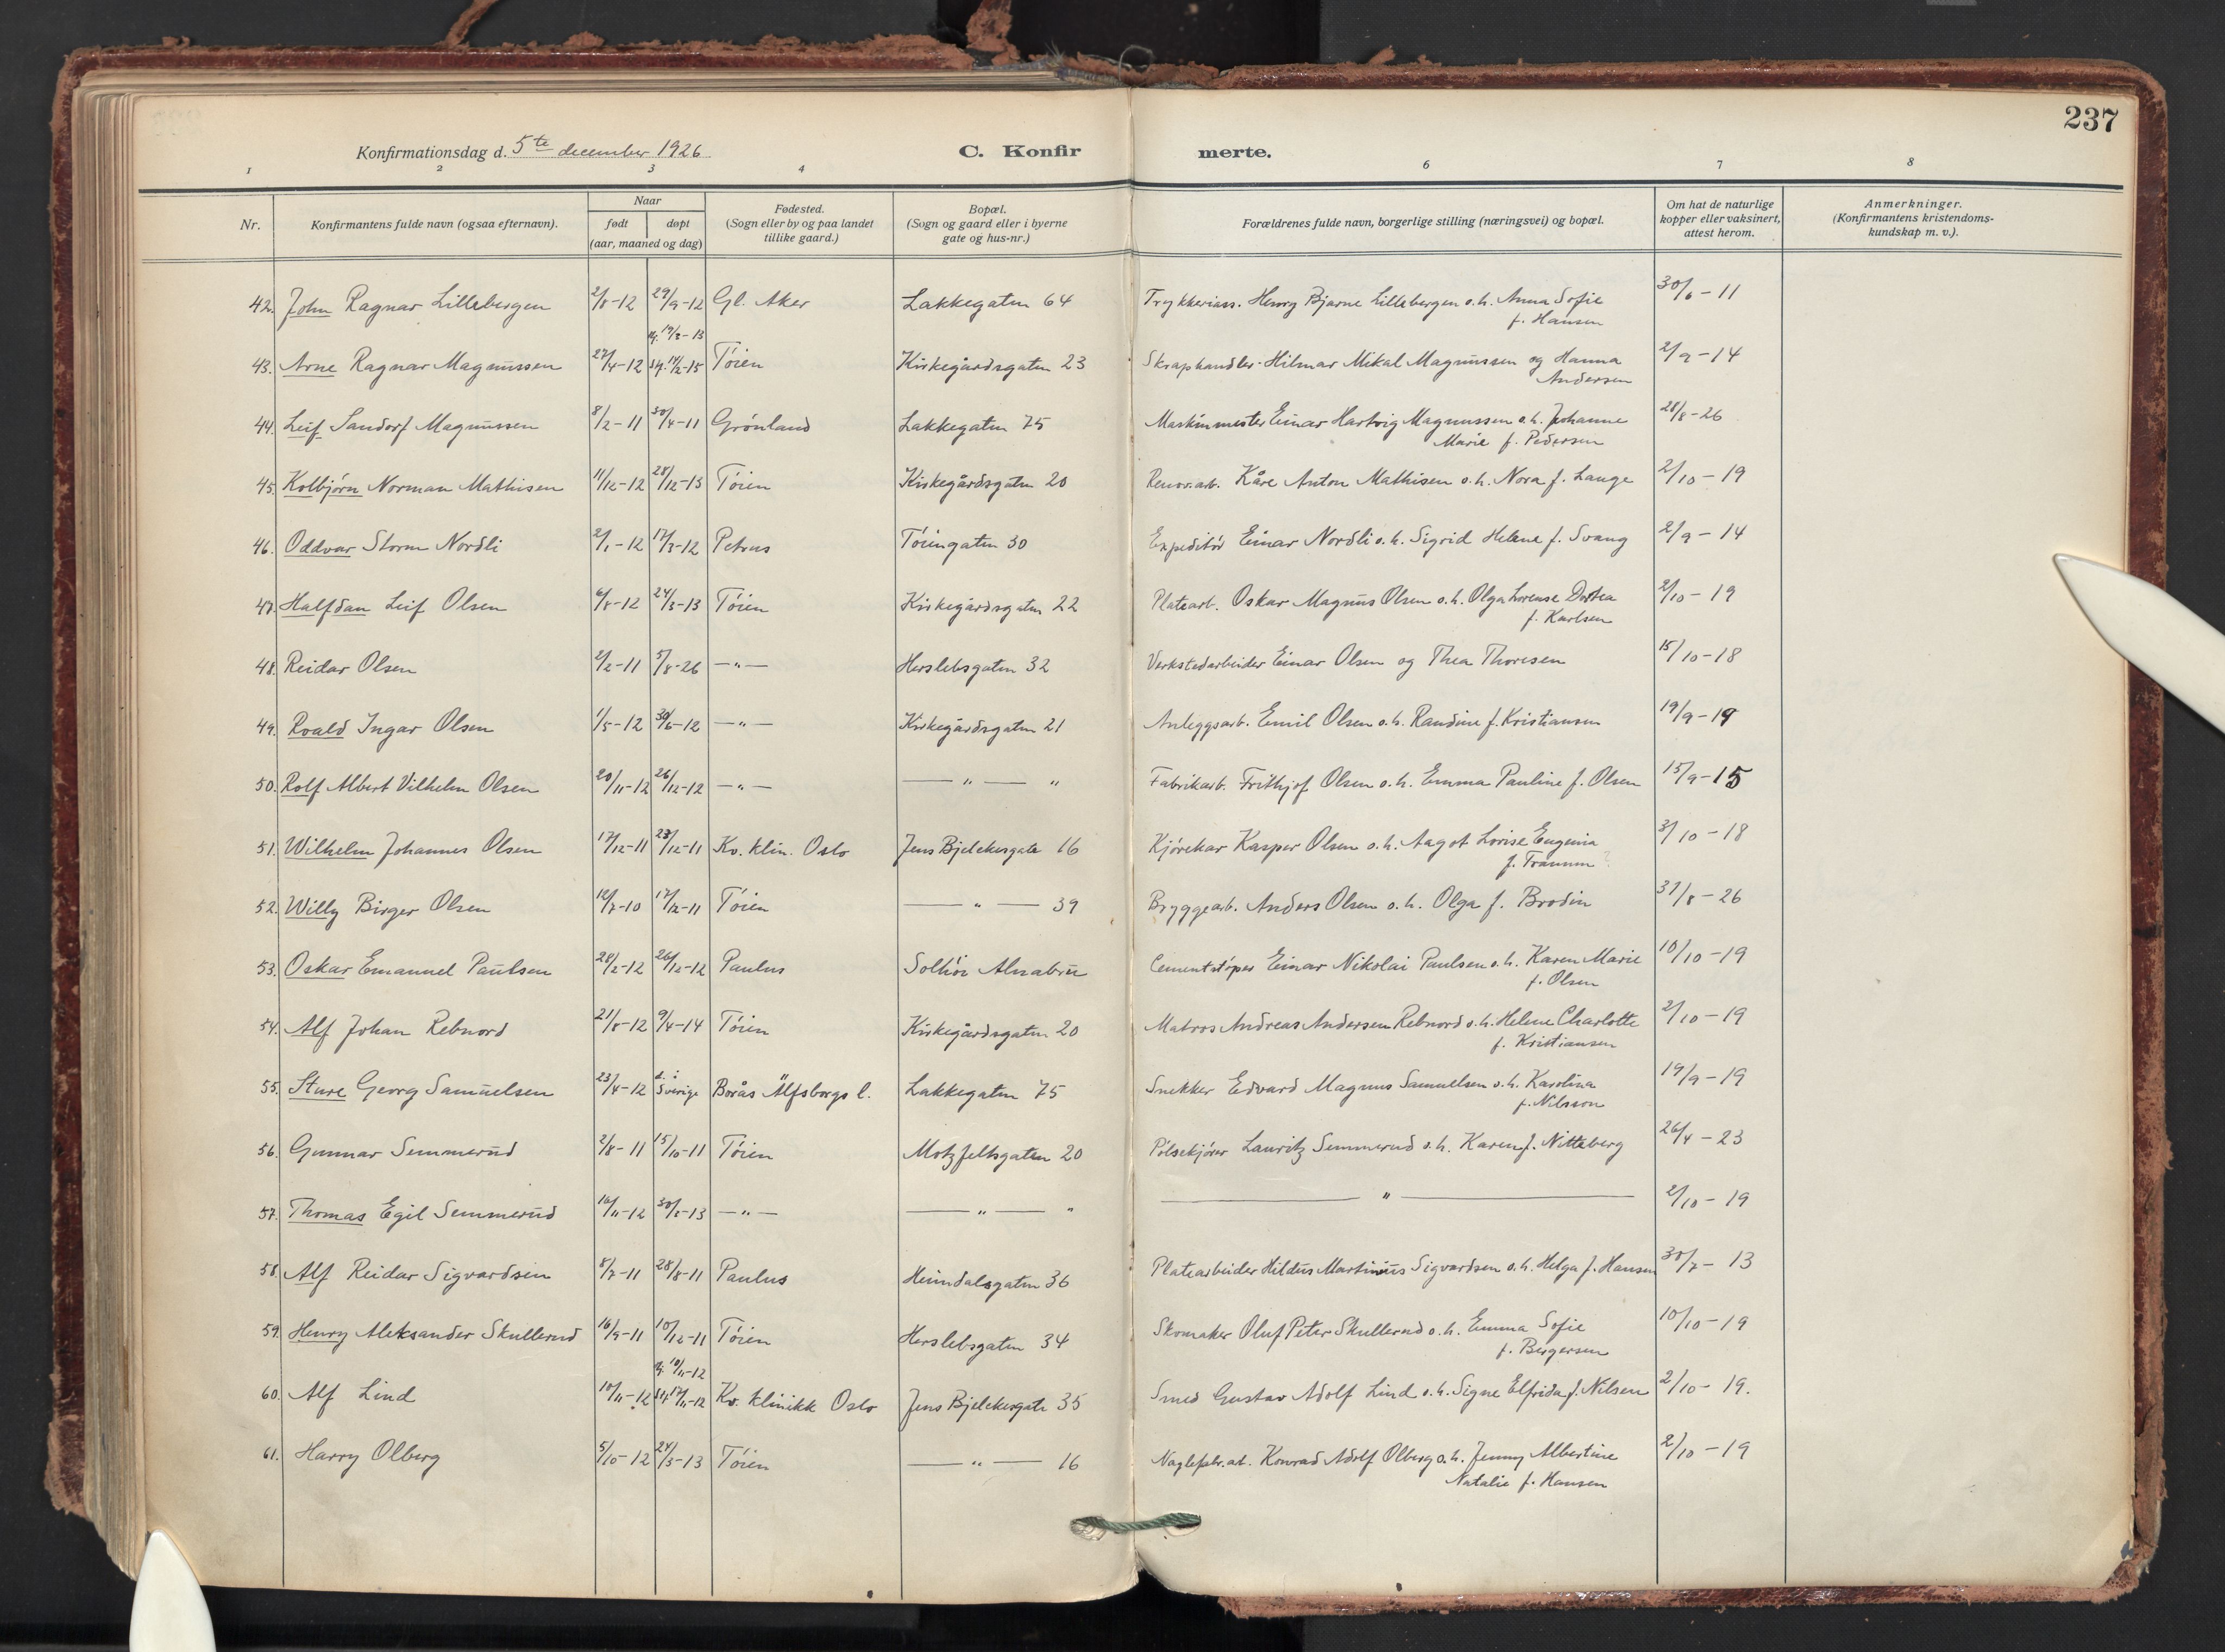 237
Konfirmationsdag d. 5te december 1926
C. Konfirmerte.
1 2 3 4 6 7 8
Nr. Konfirmantens fulde navn (ogsaa efternavn). Naar født døpt (aar, maaned og dag) Fødested. (Sogn eller by og paa landet tillike gaard.) Bopæl. (Sogn og gaard eller i byerne gate og hus-nr.) Forældrenes fulde navn, borgerlige stilling (næringsvei) og bopæl. Om hat de naturlige kopper eller vaksinert, attest herom. Anmerkninger. (Konfirmantens kristendoms-kundskap m. v.).
42. John Ragnar Lillebergen 2/8-12 29/9-12 Gl. Aker Lakkegaten 64 Trykkeriass. Henry Bjarne Lillebergen o.h. Anna Sofie 30/6-11
f. Hansen
43. Arne Ragnar Magnussen 27/4-12 Tøien Kirkegårdsgaten 23 Skraphandler Hilmar Mikal Magnussen og Hanna 2/9-14
Andersen
44. Leif Sandorf Magnussen 8/2-11 30/4-11 Grønland Lakkegaten 75 Maskinmester Einar Hartvig Magnussen o.h. Johanne 28/8-26
Marie f. Pedersen
45. Kolbjørn Norman Mathisen 11/12-12 28/12-13 Tøien Kirkegårdsgaten 20 Renov.arb. Kåre Anton Mathisen o.h. Nora f. Lange 2/10-19
46. Oddvar Storm Nordli 2/1-12 17/3-12 Petrus Tøiengaten 30 Expeditør Einar Nordli o.h. Sigrid Helene f. Svang 2/9-14
47. Halfdan Leif Olsen 6/8-12 24/3-13 Tøien Kirkegårdsgaten 22 Platearb. Oskar Magnus Olsen o.h. Olga Lorense Dortea 2/10-19
f. Karlsen
48. Reidar Olsen 2/2-11 5/8-26 —"— Herslebsgaten 32 Verkstedarbeider Einar Olsen og Thea Thoresen 15/10-18
49. Roald Ingar Olsen 1/5-12 30/6-12 —"— Kirkegårdsgaten 21 Anleggsarb. Emil Olsen o.h. Randine f. Kristiansen 19/9-19
50. Rolf Albert Vilhelm Olsen 20/11-12 26/12-12 —"— —"— " Fabrikarb. Frithjof Olsen o.h. Emma Pauline f. Olsen 15/9-15
51. Wilhelm Johannes Olsen 17/12-11 23/12-11 Kv. klin. Oslo Jens Bjelekesgate 16 Kjørekar Kasper Olsen o.h. Aagot Lovise Eugenia 3/10-18
52. Willy Birger Olsen 12/7-10 17/12-11 Tøien —"— 39 Bryggearb. Anders Olsen o.h. Olga f. Brodin 31/8-26
53. Oskar Emanuel Paulsen 28/2-12 26/12-12 Paulus Solhøi Alnabru Cementstøper Einar Nikolai Paulsen o.h. Karen Marie 10/10-19
f. Olsen
54. Alf Johan Rebnord 21/8-12 9/4-14 Tøien Kirkegårdsgaten 20 Matros Andreas Andersen Rebnord o.h. Helene Charlotte 2/10-19
f. Kristiansen
55. Sture Georg Samuelsen 23/4-12 d. i Sverige Borås Älfsborgs l. Lakkegaten 75 Snekker Edvard Magnus Samuelsen o.h. Karolina 19/9-19
f. Nilsson
56. Gunnar Semmerud 2/8-11 15/10-11 Tøien Motzfeltsgaten 20 Pølsekjører Lauritz Semmerud o.h. Karen f. Nitteberg 26/4-23
57. Thomas Egil Semmerud 16/11-12 30/3-13 —"— —"— " —"— 2/10-19
58. Alf Reidar Sigvardsen 8/7-11 28/8-11 Paulus Heimdalsgaten 36 Platearbeider Hildus Martinius Sigvardsen o.h. Helga f. Hansen 30/7-13
59. Henry Aleksander Skullerud 16/9-11 10/12-11 Tøien Herslebsgaten 34 Skomaker Oluf Peter Skullerud o.h. Emma Sofie 10/10-19
f. Birgersen
60. Alf Lind 10/11-12 Kv. klinikk Oslo Jens Bjelekesgate 35 Smed Gustav Adolf Lind o.h. Signe Elfrida f. Nilsen 2/10-19.
61. Harry Olberg 5/10-12 24/3-13 Tøien —"— 16 Naglefabr.arb. Konrad Adolf Olberg o.h. Jenny Albertine 2/10-19
Natalie f. Hansen